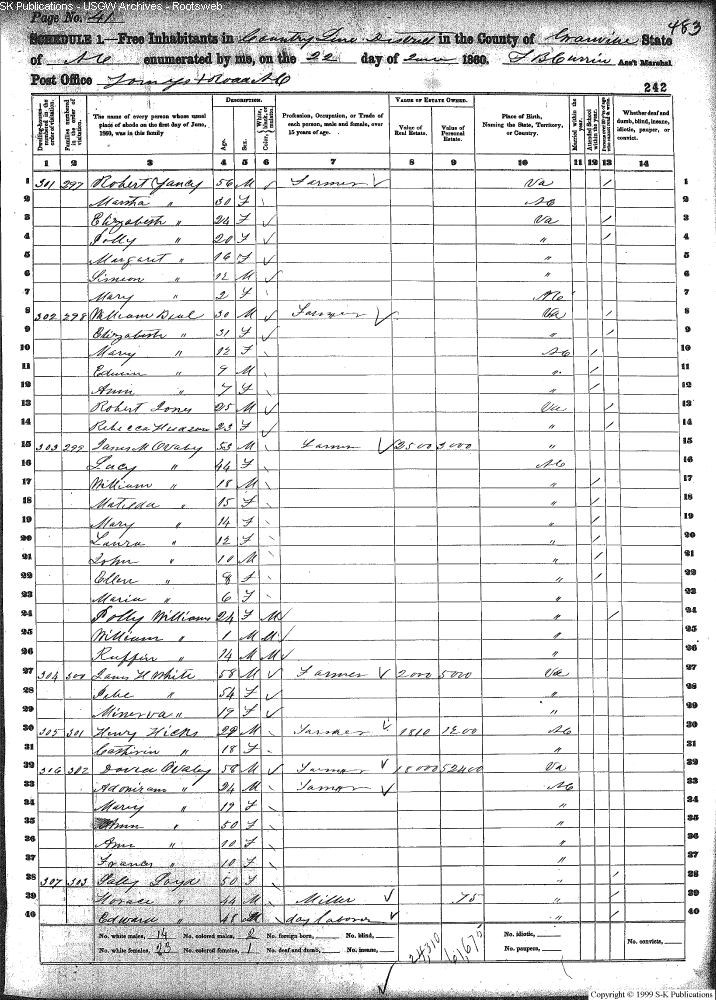 SK Publications - USGW Archives - Rootsweb
Page No. 41
483
SCHEDULE 1.—Free Inhabitants in Country Line District in the County of Granville State
of NC enumerated by me, on the 22 day of June 1860. Ass't Marshal
Post Office
242
Dwelling-houses— numbered in the order of visitation.
Families numbered in the order of visitation.
The name of every person whose usual place of abode on the first day of June, 1860, was in this family
DESCRIPTION.
Age.
Sex.
Color,
Profession, Occupation, or Trade of each person, male and female, over 15 years of age.
VALUE OF ESTATE OWNED.
Value of Real Estate.
Value of Personal Estate.
Place of Birth, Naming the State, Territory, or Country.
Married within the year.
Attended School within the year.
Whether deaf and dumb, blind, insane, idiotic, pauper, or convict.
1 2 3 4 5 6 7 8 9 10 11 12 13 14
1 301 297 Robert Yancy 56 M Farmer Va 1
2 Martha " 30 F NC 2
3 Elizabeth " 24 F Va 3
4 Polly " 20 F " 4
5 Margaret " 16 F " 5
6 Simeon " 12 M " 6
7 Mary " 2 F NC 7
8 302 298 William Deal 30 M Farmer Va 8
9 Elizabeth " 31 F " 9
10 Mary " 12 F NC 10
11 Edwin " 9 M " 11
12 Ann " 7 F " 12
13 Robert Jones 25 M Va 13
14 Rebecca Hudson 23 F " 14
15 303 299 James M Ovaby 53 M Farmer 2500 3000 15
16 Lucy " 44 F NC 16
17 William " 18 M " 17
18 Matilda " 15 F " 18
19 Mary " 14 F " 19
20 Laura " 12 F " 20
21 John " 10 M " 21
22 Ellen " 8 F " 22
23 Maria " 6 F " 23
24 Polly Williams 24 F M " 24
25 William " 1 M M " 25
26 Ruffin " 14 M M " 26
27 304 300 James H White 58 M Farmer 2000 5000 Va 27
28 " 54 F " 28
29 Minerva " 19 F " 29
30 305 301 Henry Hicks 29 M Farmer 1810 1200 NC 30
31 " 18 F " 31
32 316 302 David Ovaby 58 M Farmer 18000 52400 Va 32
33 Adoniram " 24 M Farmer NC 33
34 Mary " 19 F " 34
35 Ann " 50 F " 35
36 Ann " 10 F " 36
37 Frances " 10 F " 37
38 307 303 Sally 50 F " 38
39 Horace " 44 M Miller 75 " 39
40 Edward " 48 M day laborer " 40
No. white males, 14 No. colored males, 2 No. foreign born, No. blind, No. idiotic, No. convicts,
No. white females, 23 No. colored females, 1 No. deaf and dumb, No. insane, No. paupers,
24,310 61,675
Copyright © 1999 S-K Publications